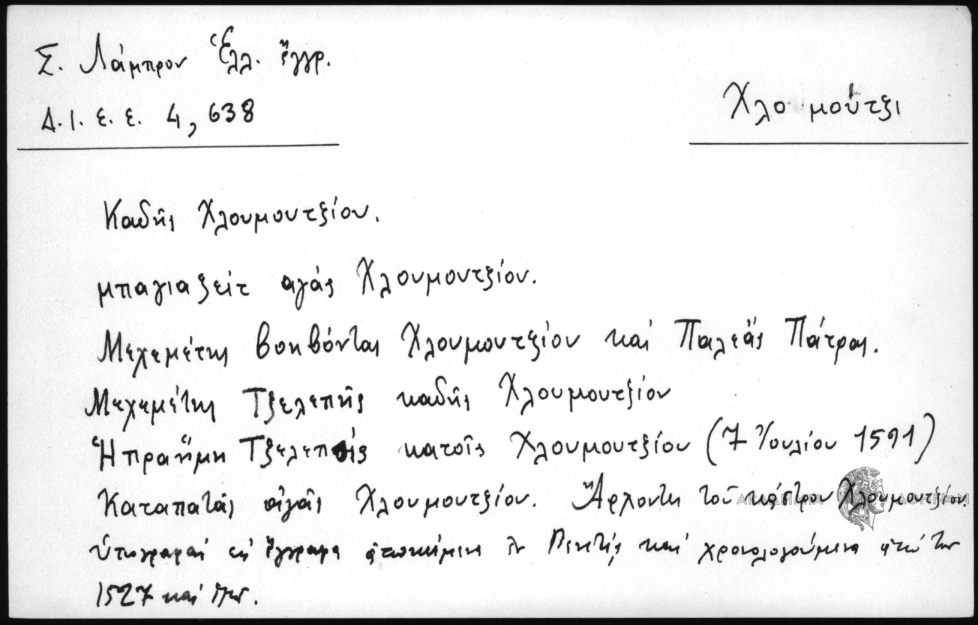 Σ. Λάμπρου Ἑλλ. ἔγγρ.
Δ.Ι.Ε.Ε. 4, 638
Χλομούτζι
Καδῆς Χλουμουτζίου.
μπαγιαζεὶτ αγᾶς Χλουμουτζίου.
Μεχεμέτης βοηβόντας Χλουμουτζίου καὶ Παλεᾶς Πάτρας.
Μεχεμέτης Τζελεπῆς καδῆς Χλουμουτζίου
Ἡπραήμης Τζελεπῆς κατοῖς Χλουμουτζίου (7 Ἰουλίου 1591)
Καταπατᾶς ἀγᾶς Χλουμουτζίου. Ἄρχοντες τοῦ κάστρου Χλουμουτζίου
ὑπογραφαὶ εἰς ἔγγραφα ἀποκείμενα ἐν Βενετίᾳ καὶ χρονολογούμενα ἀπὸ τοῦ
1527 καὶ ἑξῆς.